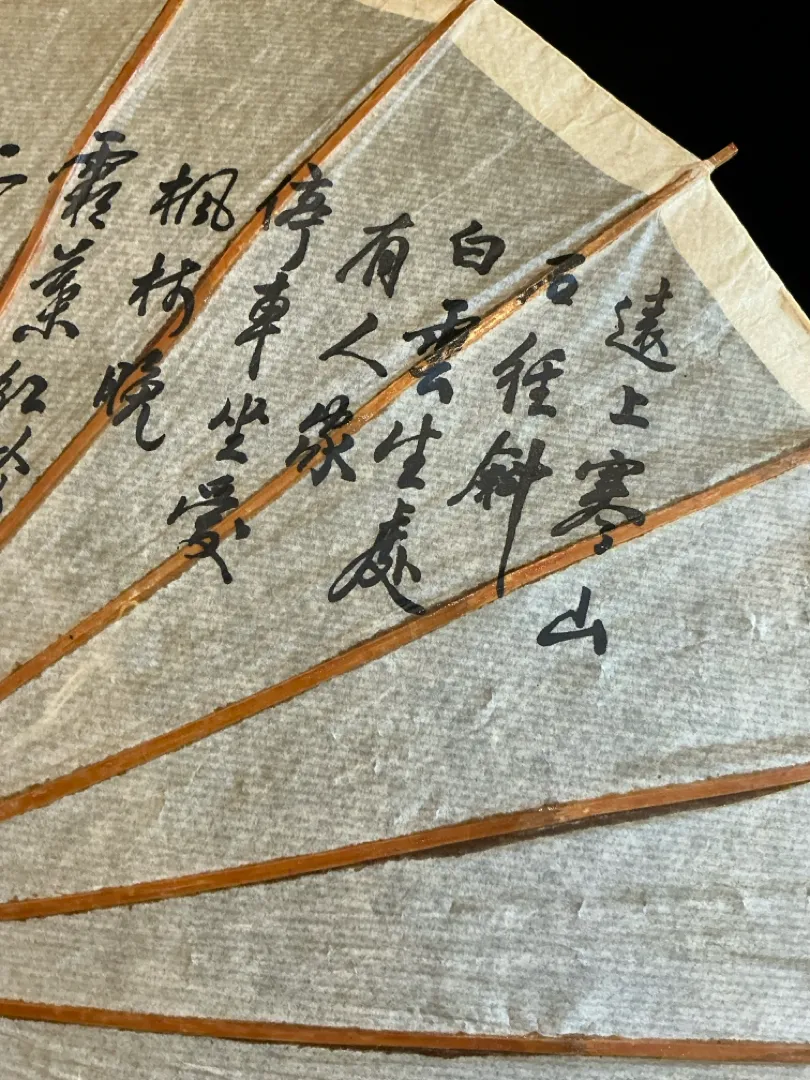 遠上寒山
石徑斜
白雲生處
有人家
停車坐愛
楓林晚
霜葉紅於
二